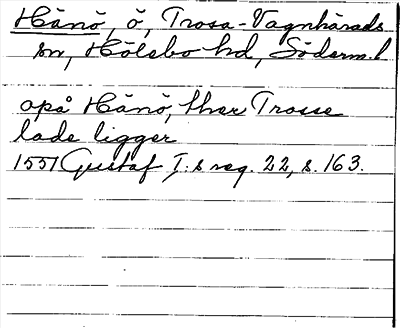 Hånö, ö, Trosa-Vagnhärads
sn, Hölebo hd, Söderm. l
opå Hånö, ther Trosse
lade ligger
1551 Gustaf I:s reg. 22, s. 163.